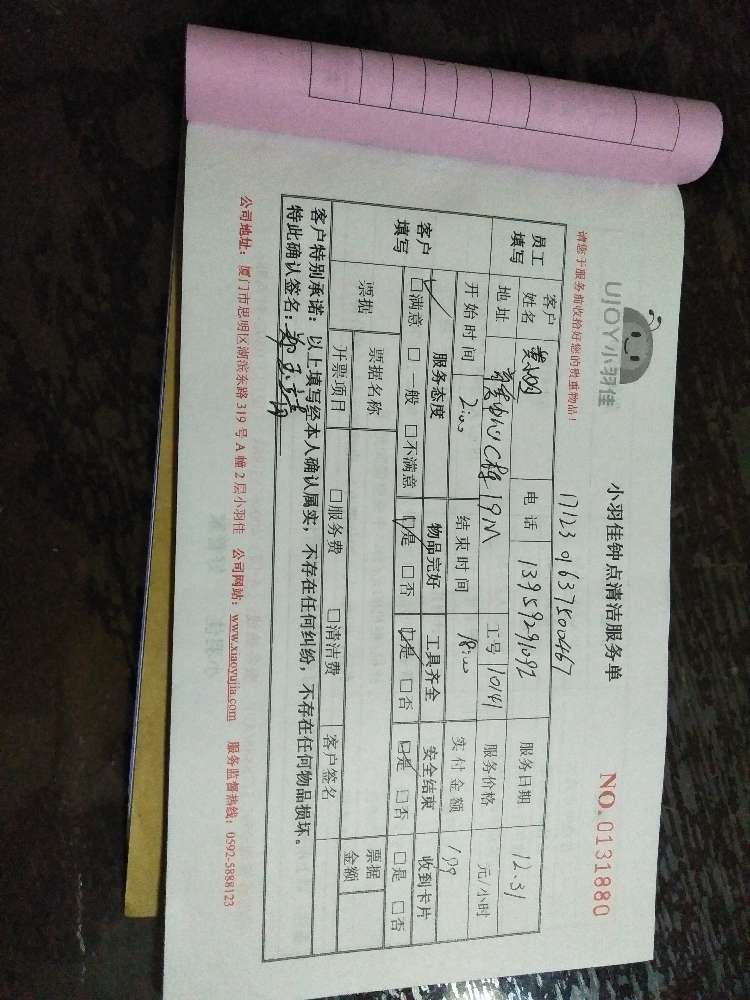 UJOY小羽佳
小羽佳钟点清洁服务单
NO.0131880
请您于服务前收拾好您的贵重物品！
1712301637500467
员工填写 客户姓名 电话 13959291092 服务日期 12.31
地址 C栋19M 工号 10141 服务价格 元/小时
开始时间 结束时间 实付金额 199
客户填写 服务态度 物品完好 工具齐全 安全结束 收到卡片
☑满意 □一般 □不满意 ☑是 □否 ☑是 □否 ☑是 □否 □是 □否
票据 票据名称 客户签名 票据金额
开票项目 □服务费 □清洁费
客户特别承诺：以上填写经本人确认属实，不存在任何纠纷，不存在任何物品损坏。
特此确认签名：
公司地址：厦门市思明区湖滨东路319号A幢2层小羽佳 公司网站：www.xiaoyujia.com 服务监督热线：0592-5888123